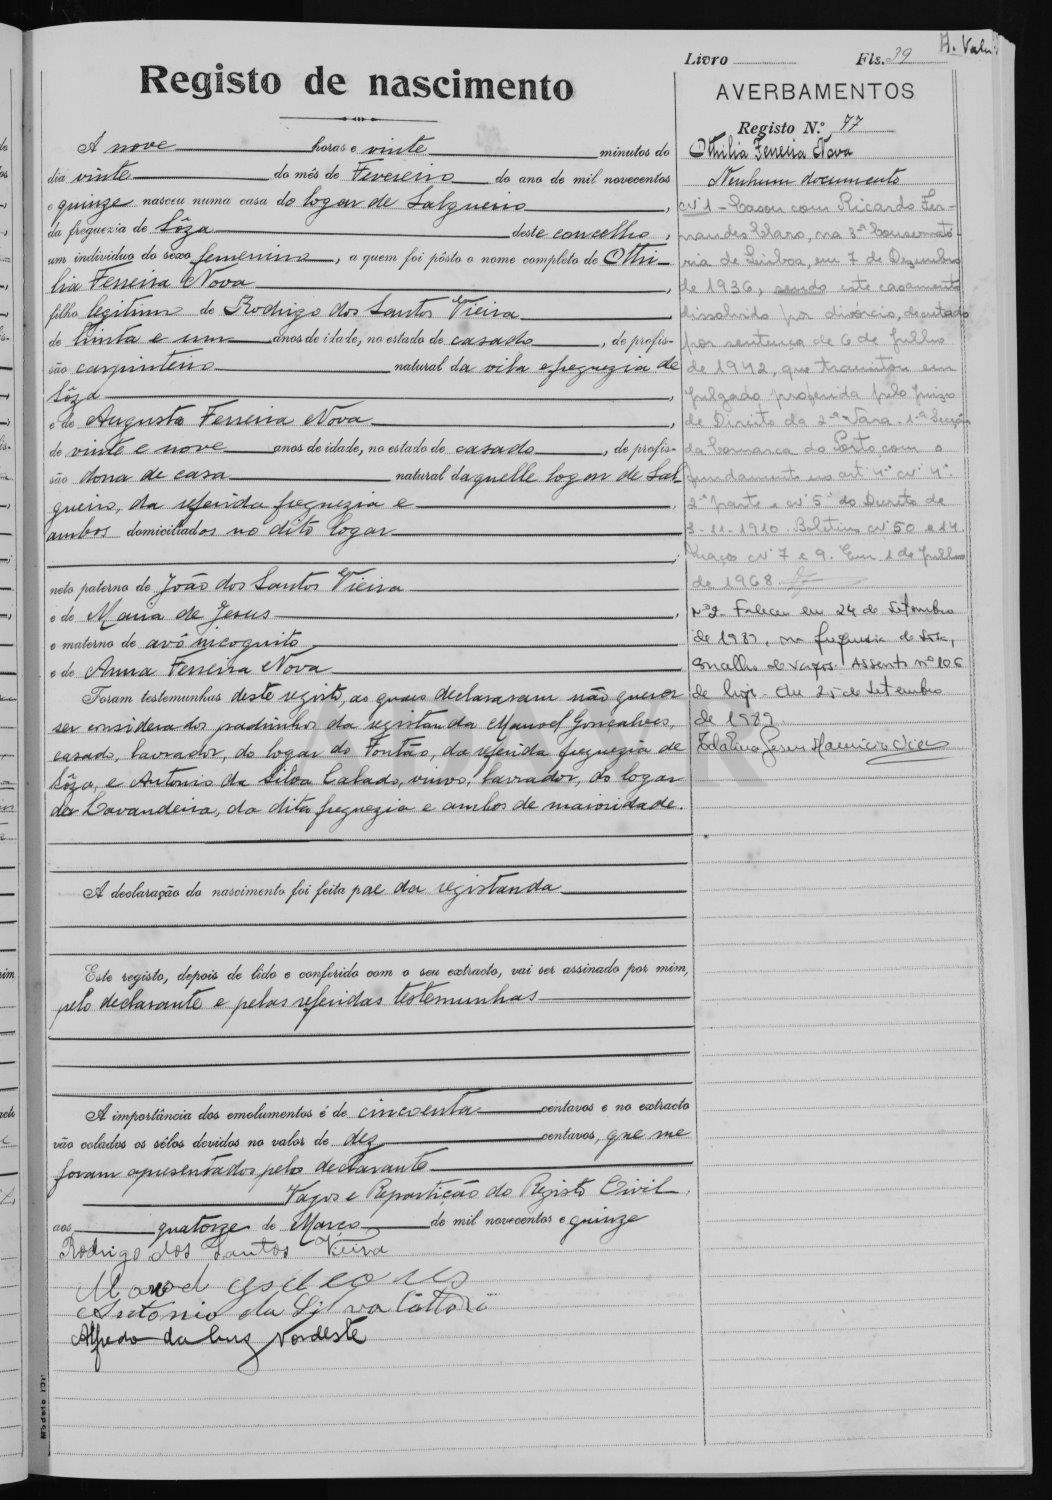 A. Valu
Livro Fls. 39
Registo de nascimento
AVERBAMENTOS
Registo N.º 77
A nove horas e vinte minutos do
dia vinte do mês de Fevereiro do ano de mil novecentos
e quinze nasceu numa casa do logar de Salgueiro,
da freguezia de Sôza deste concelho,
um individuo do sexo femenino, a quem foi pôsto o nome completo de Othi-
lia Ferreira Nova,
filho legitimo de Rodrigo dos Santos Vieira
de trinta e um anos de idade, no estado de casado, de profis-
são carpinteiro natural da vila e freguezia de
Sôza,
e de Augusta Ferreira Nova,
de vinte e nove anos de idade, no estado de casada, de profis-
são dona de casa natural daquelle logar de Sal-
gueiro, da referida freguezia e,
ambos domiciliados no dito logar
;
neto paterno de João dos Santos Vieira
e de Maria de Jesus,
e materno de avô incognito
e de Anna Ferreira Nova
Foram testemunhas deste registo, as quaes declararam não querer
ser considerados padrinhos da registanda Manoel Gonçalves,
casado, lavrador, do logar do Fontão, da referida freguezia de
Sôza, e Antonio da Silva Calado, viuvo, lavrador, do logar
da Lavandeira, da dita freguezia e ambos de maioridade.
A declaração do nascimento foi feita pae da registanda
Este registo, depois de lido e conferido com o seu extracto, vai ser assinado por mim,
pelo declarante e pelas referidas testemunhas
A importância dos emolumentos é de cincoenta centavos e no extracto
vão colados os sêlos devidos no valor de dez centavos, que me
foram apresentados pelo declarante
Vagos e Repartição do Registo Civil,
aos quatorze de Março de mil novecentos e quinze
Rodrigo dos Santos Vieira
Manoel
Antonio da Silva
Alfredo da Luz Nordeste
Modelo
Othilia Ferreira Nova
Nenhum documento
Nº 1 - Casou com Ricardo Fer-
nandes Claro, na 3ª Conservató-
ria de Lisboa, em 7 de Dezembro
de 1936, sendo este casamento
dissolvido por divórcio, decretado
por sentença de 6 de Julho
de 1942, que transitou em
julgado proferida pelo Juizo
de Direito da 2ª Vara - 1ª Secção
da Comarca do Porto com o
fundamento no artº 4º nº 4º
2ª parte e nº 5º do Decreto de
3-11-1910. Boletins nº 50 e 14.
Maços nº 7 e 9. Em 1 de Julho
de 1968
Nº 2 Faleceu em 24 de Setembro
de 1989, na freguesia de Sôza,
concelho de Vagos. Assento nº 106
de hoje. Em 25 de Setembro
de 1989